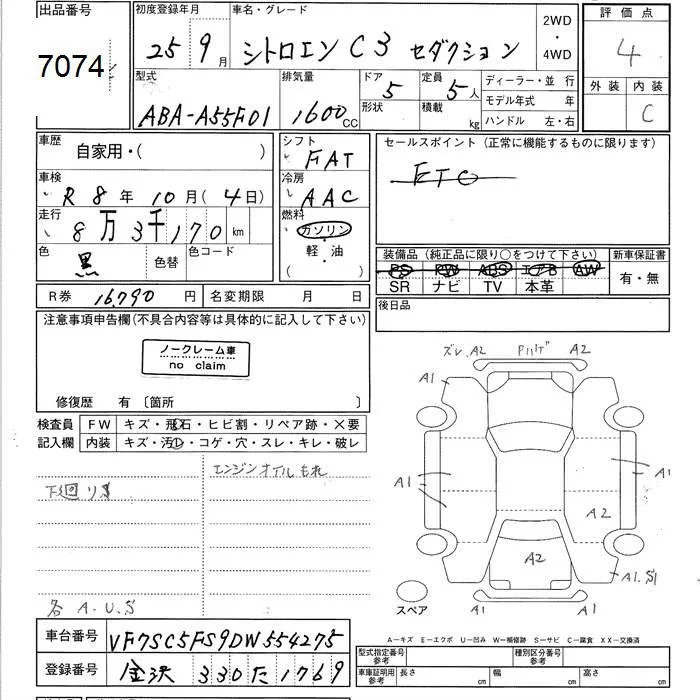 出品番号
7074
初度登録年月
25 9月
車名・グレード
シトロエン C3 セダクション
2WD
・
4WD
評価点
4
外装 内装
C
型式
ABA-A55F01
排気量
1600 CC
ドア
5
形状
定員
5人
積載
kg
ディーラー・並 行
モデル年式 年
ハンドル 左・右
車歴
自家用・( )
車検
R 8年 10月(4日)
走行
8万3千170 km
色
黒
色替
色コード
シフト
FAT
冷房
AAC
燃料
ガソリン
・
軽・油
( )
セールスポイント(正常に機能するものに限ります)
ETC
装備品(純正品に限り○をつけて下さい)
PS PW ABS エアB AW
SR ナビ TV 本革
新車保証書
有・無
R券 16,790 円
名変期限 月 日
後日品
注意事項申告欄(不具合内容等は具体的に記入して下さい)
ノークレーム車
no claim
修復歴 有 〔箇所 〕
検査員
記入欄
FW キズ・飛石・ヒビ割・リペア跡・×要
内装 キズ・汚レ・コゲ・穴・スレ・キレ・破レ
エンジンオイルもれ
各 A.U.S
ズレ.A2
A2
A1
A1
A1
A1
A2
A2
A1.S1
A1
A1
スペア
車台番号 VF7SC5FS9DW554275
登録番号 金沢 330 た 1769
A―キズ E―エクボ U―凹み W―補修跡 S―サビ C―腐食 XX―交換済
型式指定番号
参考
種別区分番号
参考
車庫証明用
参考
長さ cm
幅 cm
高さ cm